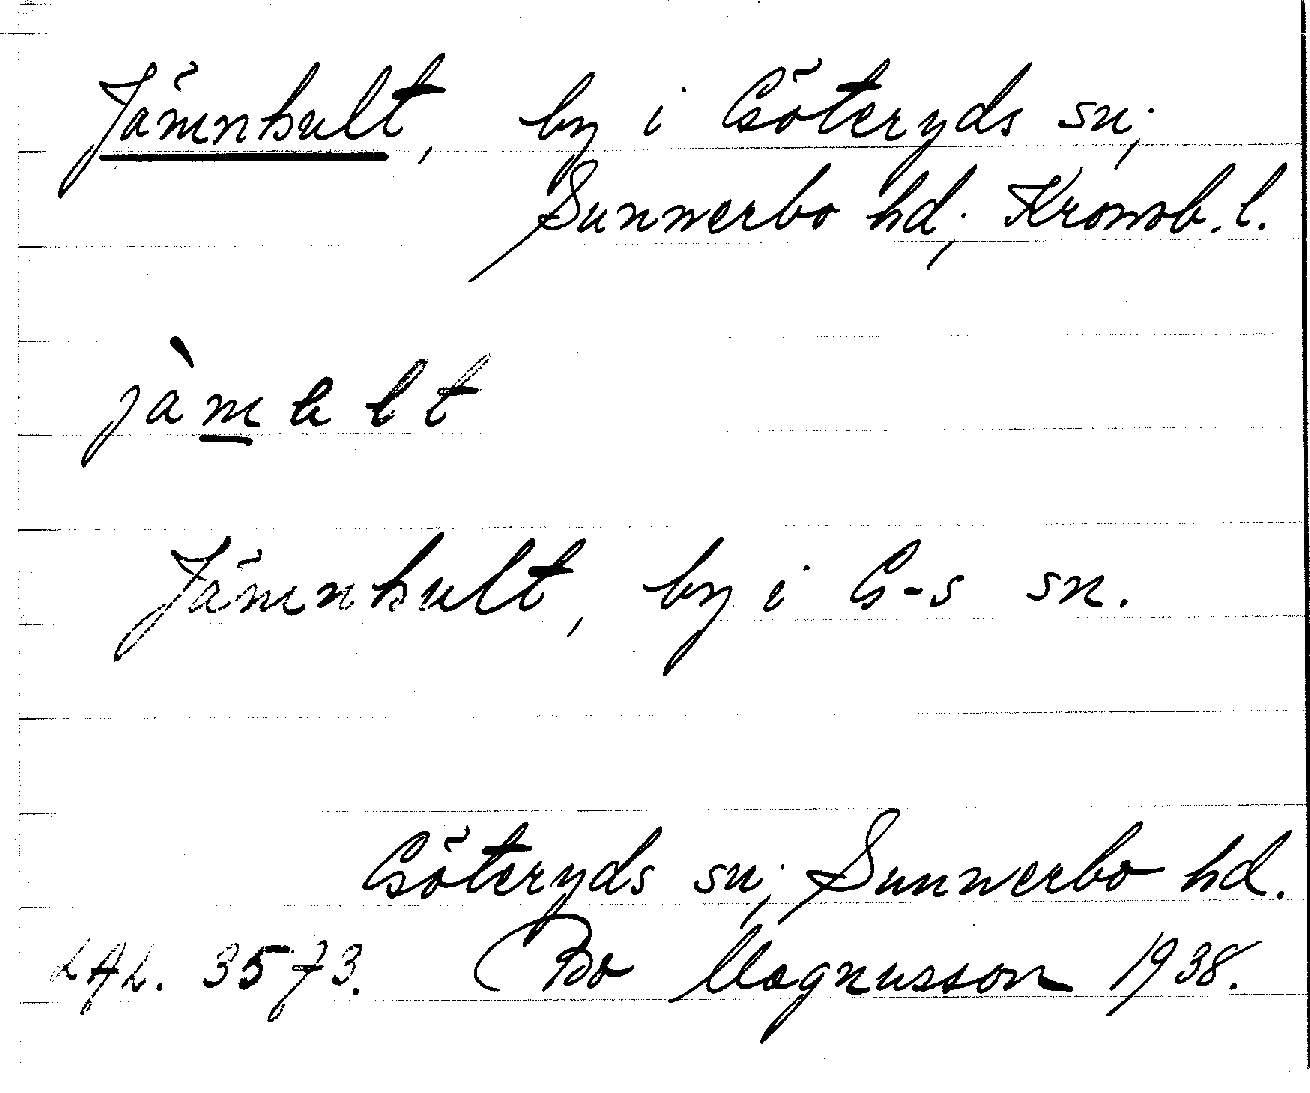 Jämnhult, by i Göteryds sn;
Sunnerbo hd; Kronob. l.
Jämnhult, by i G-s sn.
Göteryds sn; Sunnerbo hd.
LAL. 3573. Bo Magnusson 1938.